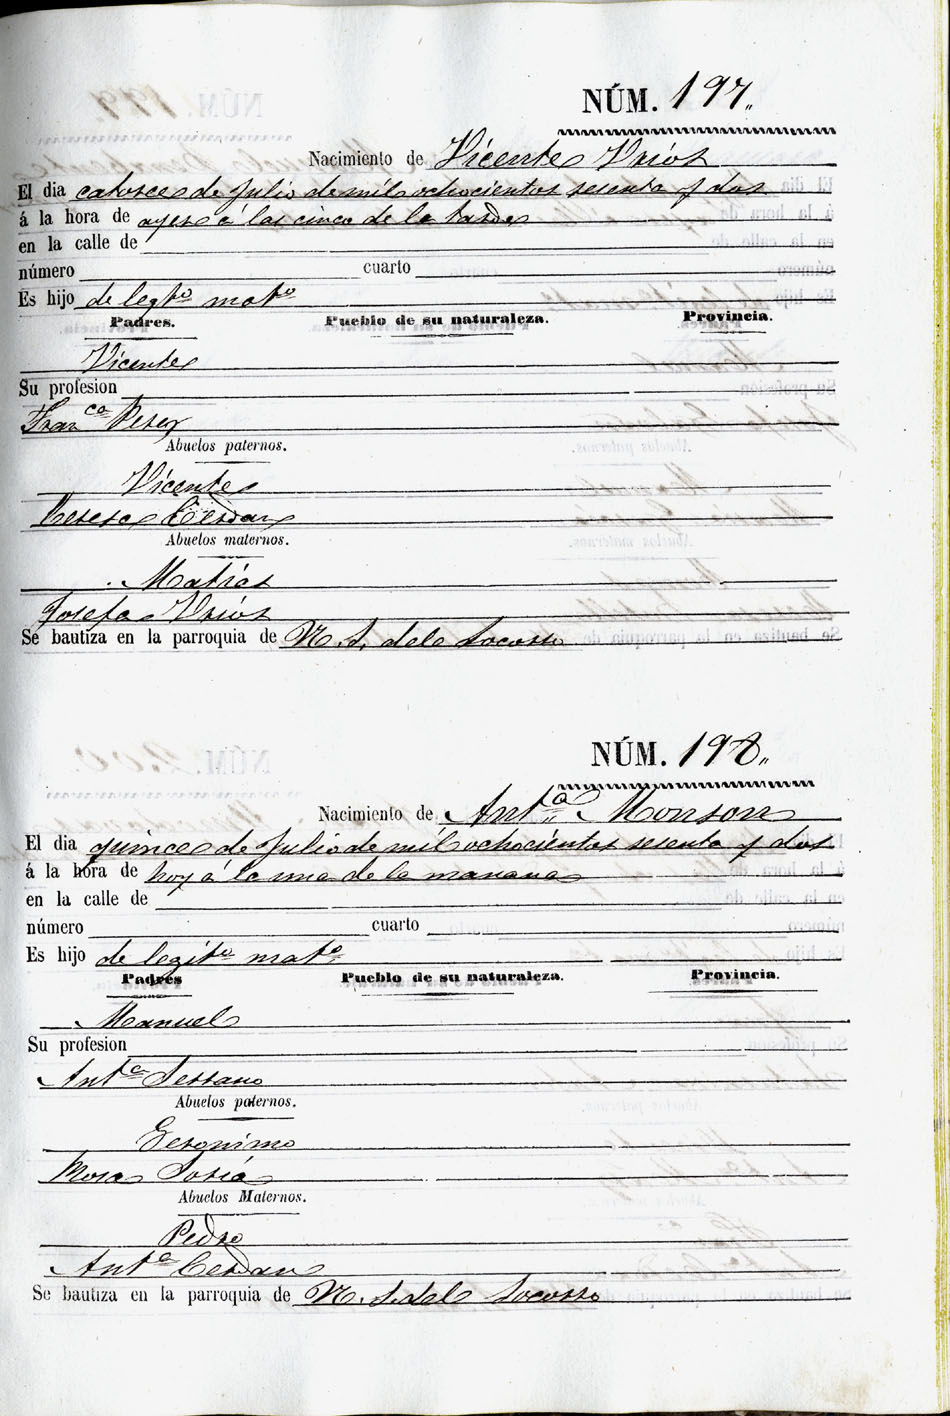 NÚM. 197„
Nacimiento de Vicente Vrios
El dia catorce de Julio de mil ochocientos sesenta y dos
á la hora de ayer á las cinco de la tarde
en la calle de
número cuarto
Es hijo de legto mato
Padres. Pueblo de su naturaleza. Provincia.
Vicente
Su profesion
Franca Perez
Abuelos paternos.
Vicente
Teresa Cerdan
Abuelos maternos.
Matias
Josefa Vrios
Se bautiza en la parroquia de N. S. dele Socorro
NÚM. 198„
Nacimiento de Anta Monzon
El dia quince de Julio de mil ochocientos sesenta y dos
á la hora de hoy á la una de la manana
en la calle de
número cuarto
Es hijo de legito mato
Padres Pueblo de su naturaleza. Provincia.
Manuel
Su profesion
Anta Serrano
Abuelos paternos.
Geronimo
Rosa Soria
Abuelos Maternos.
Pedro
Anta Cerdan
Se bautiza en la parroquia de N. S. del Socorro